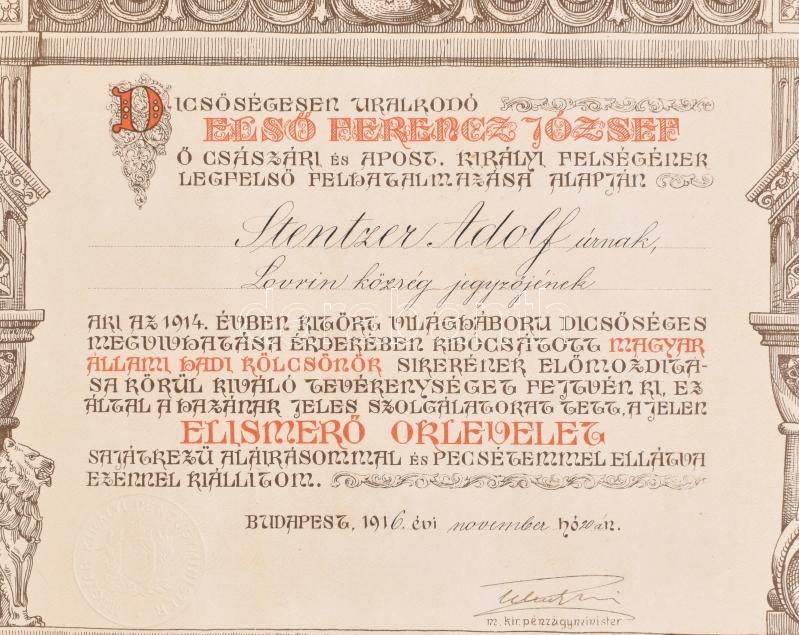 DICSŐSÉGESEN URALKODÓ
ELSŐ FERENCZ JÓZSEF
Ő CSÁSZÁRI ÉS APOST. KIRÁLYI FELSÉGÉNEK
LEGFELSŐ FELHATALMAZÁSA ALAPJÁN
Stentzer Adolf úrnak,
Lovrin község jegyzőjének
AKI AZ 1914. ÉVBEN KITÖRT VILÁGHÁBORU DICSŐSÉGES
MEGVIVHATÁSA ÉRDEKÉBEN KIBOCSÁTOTT MAGYAR
ÁLLAMI HADI KÖLCSÖNÖK SIKERÉNEK ELŐMOZDITÁ-
SA KÖRÜL KIVÁLÓ TEVÉKENYSÉGET FEJTVÉN KI, EZ
ÁLTAL A HAZÁNAK JELES SZOLGÁLATOKAT TETT, A JELEN
ELISMERŐ OKLEVELET
SAJÁTKEZÜ ALÁIRÁSOMMAL ÉS PECSÉTEMMEL ELLÁTVA
EZENNEL KIÁLLITOM.
BUDAPEST, 1916. évi november hó 20 án.
m. kir. pénzügyminister